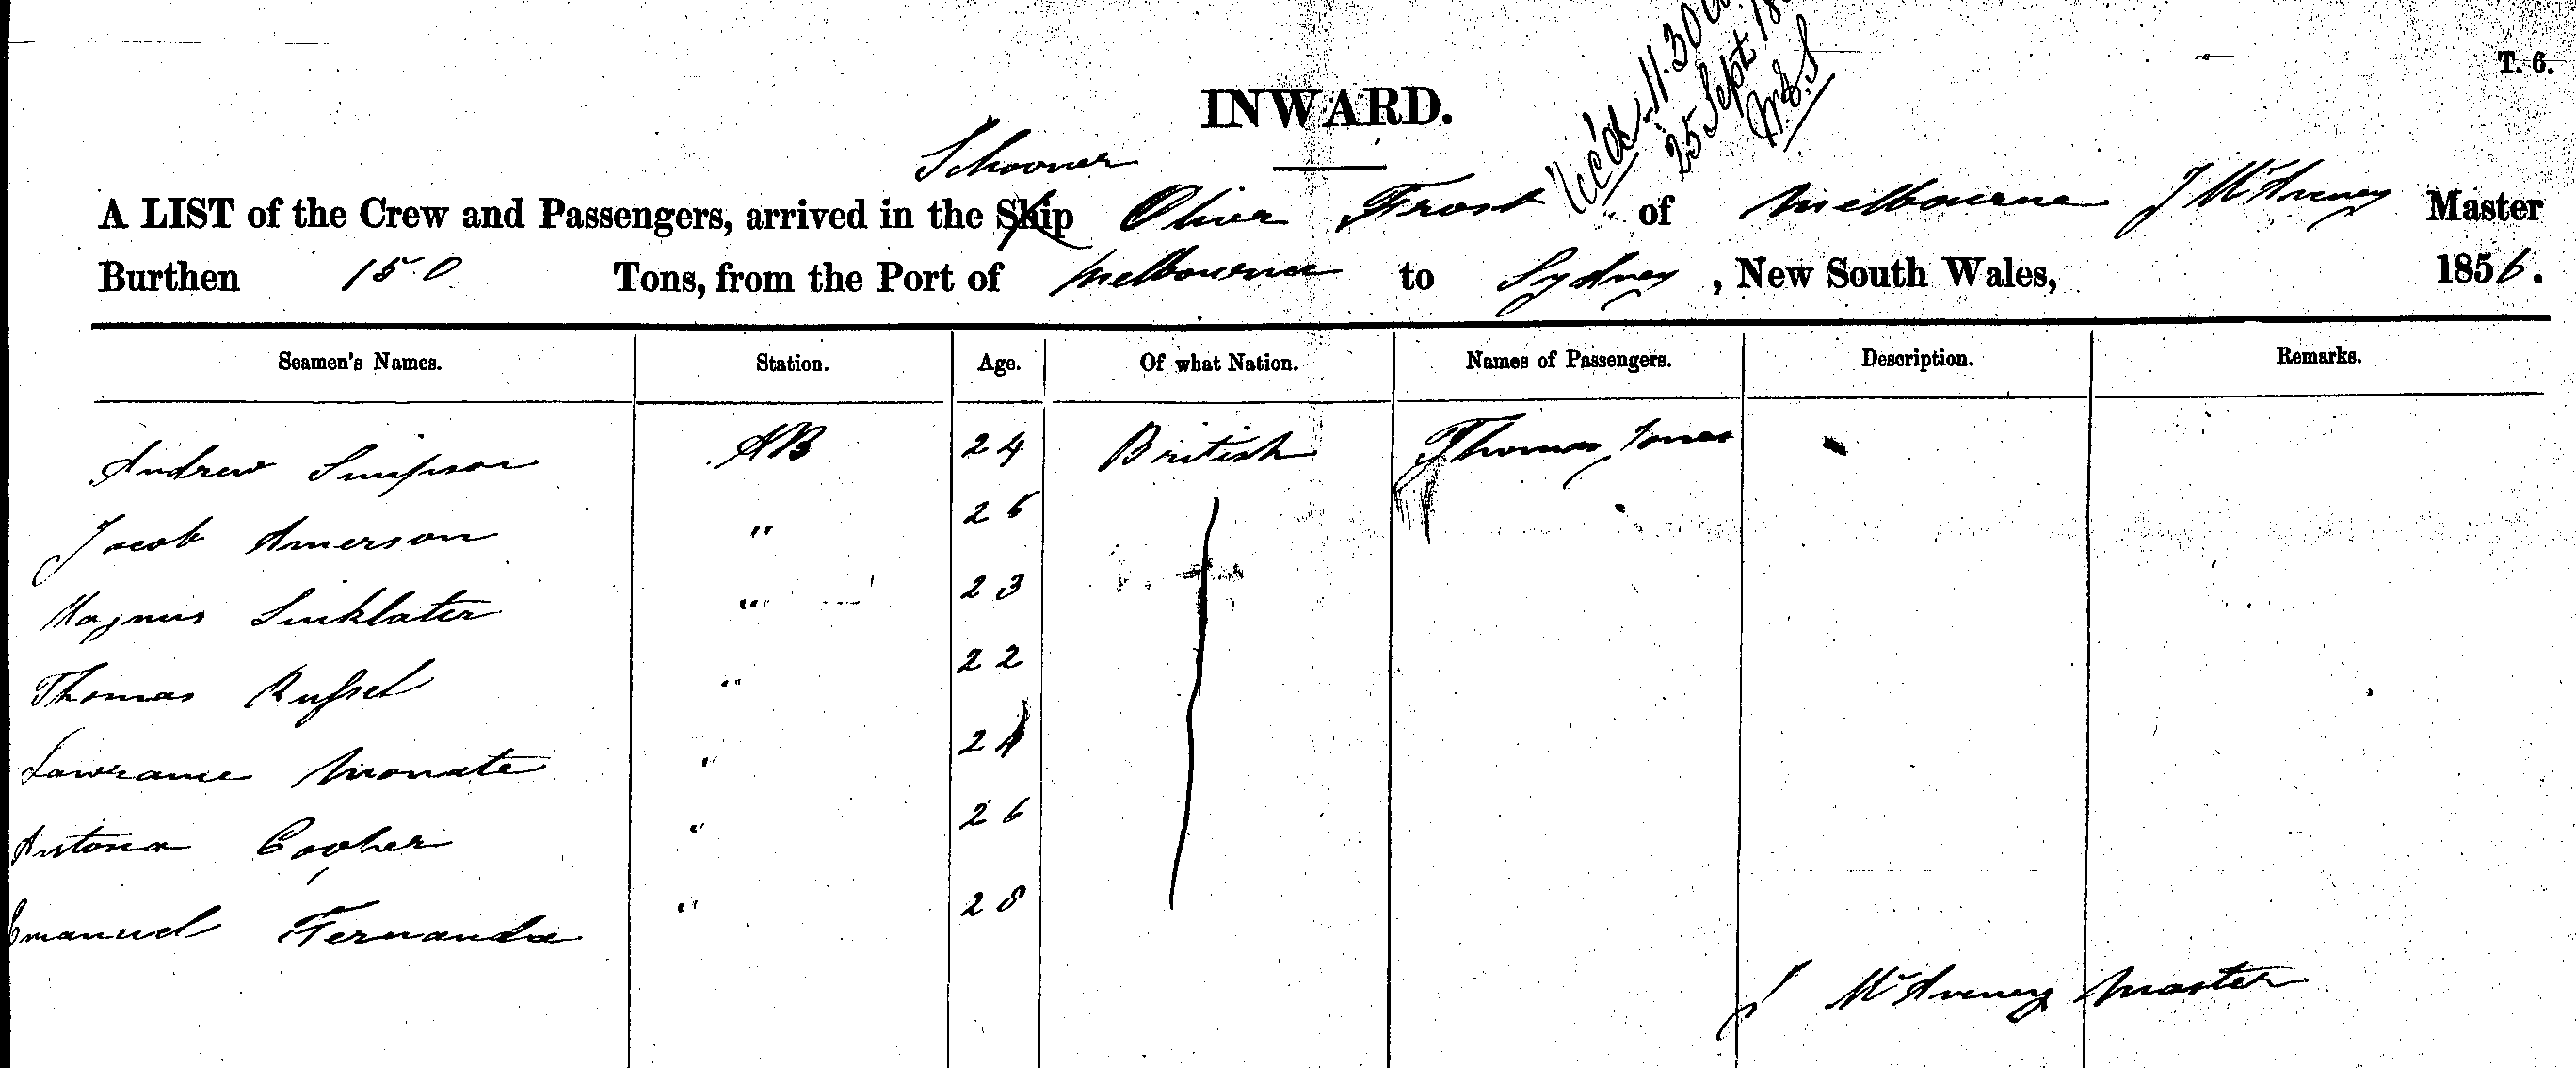 T. 6.
Rec'd 11.30 a.
25 Sept. 18
INWARD.
Schooner
A LIST of the Crew and Passengers, arrived in the Ship Oliver Frost of Melbourne J McAveney Master
Burthen 150 Tons, from the Port of Melbourne to Sydney, New South Wales, 1856.
Seamen's Names. Station. Age. Of what Nation. Names of Passengers. Description. Remarks.
Andrew Simpson AB 24 British Thomas Jones
Jacob Amerson " 26
Magnus Sinklater " 23
Thomas Russel " 22
Lawrance Monate " 24
Antona Cooper " 26
Emanuel Fernanda " 28
J McAveney Master